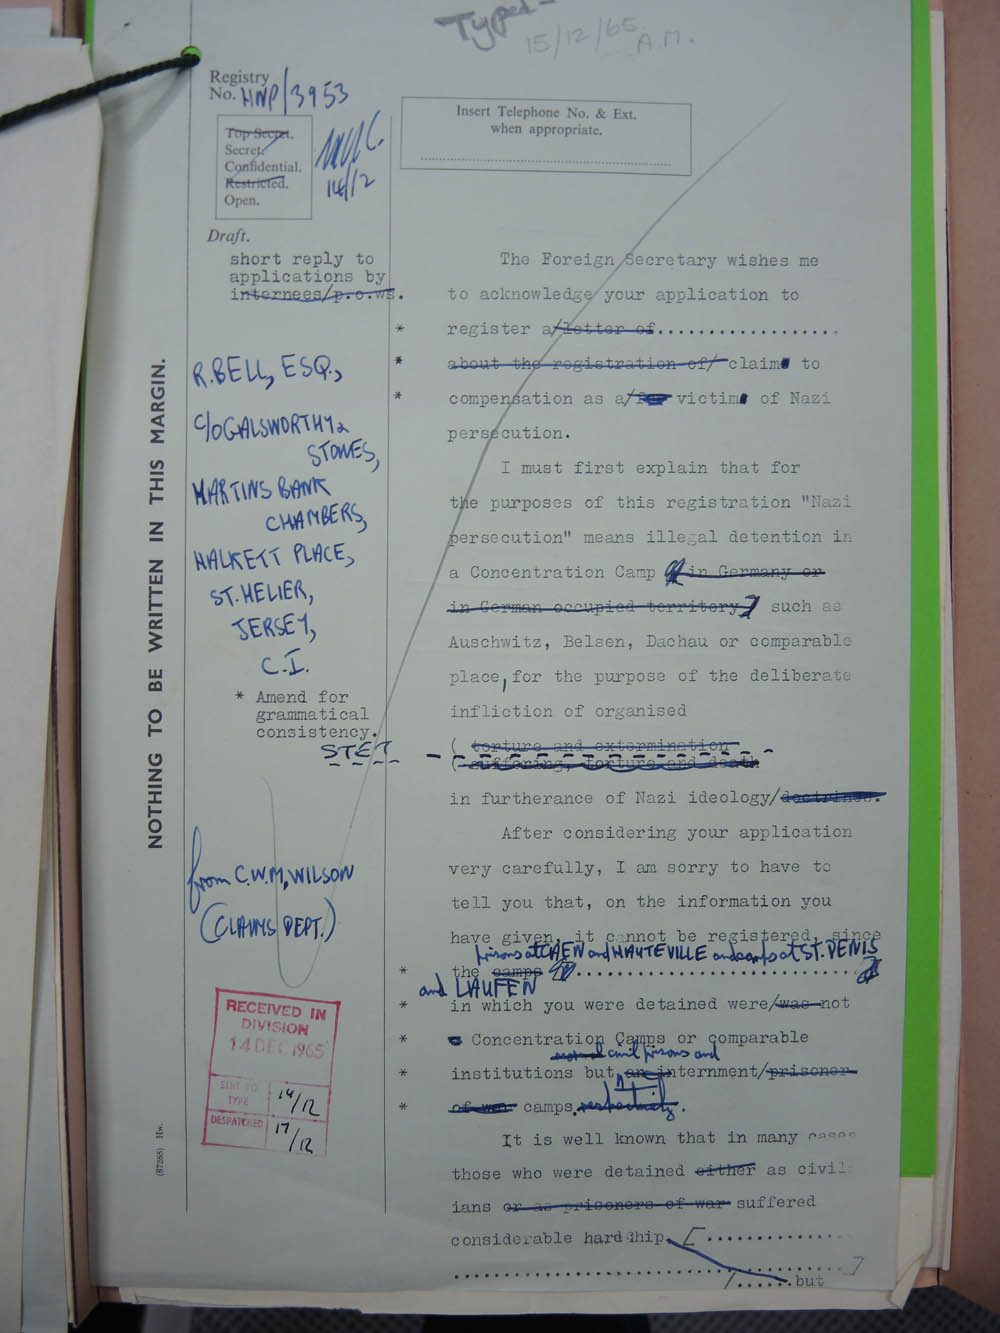 Typed -
15/12/65
A.M.
Registry
No. HNP/3953
Top Secret.
Secret.
Confidential.
Restricted.
Open.
14/12
Insert Telephone No. & Ext.
when appropriate.
Draft.
short reply to
applications by
internees/p.o.ws.
R.BELL, ESQ.,
C/O GALSWORTHY &
STONES,
MARTINS BANK
CHAMBERS,
HALKETT PLACE,
ST. HELIER,
JERSEY,
C.I.
* Amend for
grammatical
consistency.
STET
from C.W.M. WILSON
(CLAIMS DEPT.)
RECEIVED IN
DIVISION
14 DEC 1965
SENT TO
TYPE 14/12
DESPATCHED 17/12
NOTHING TO BE WRITTEN IN THIS MARGIN.
(87288) Hw.
The Foreign Secretary wishes me
to acknowledge your application to
* register a/letter of..................
* about the registration of/ claim to
* compensation as a/for victim of Nazi
persecution.
I must first explain that for
the purposes of this registration "Nazi
persecution" means illegal detention in
a Concentration Camp in Germany or
in German occupied territory such as
Auschwitz, Belsen, Dachau or comparable
place, for the purpose of the deliberate
infliction of organised
( torture and extermination
( suffering, torture and death
in furtherance of Nazi ideology/doctrines.
After considering your application
very carefully, I am sorry to have to
tell you that, on the information you
have given, it cannot be registered, since
prisons at CAEN and HAUTEVILLE and camps at ST. DENIS
* the camps ..............................
and LAUFEN
* in which you were detained were/was not
* Concentration Camps or comparable
normal civil prisons and
* institutions but an internment/prisoner
* of war camps respectively.
It is well known that in many cases
those who were detained either as civil-
ians or as prisoners of war suffered
considerable hardship. [...............
........................................]
/......but